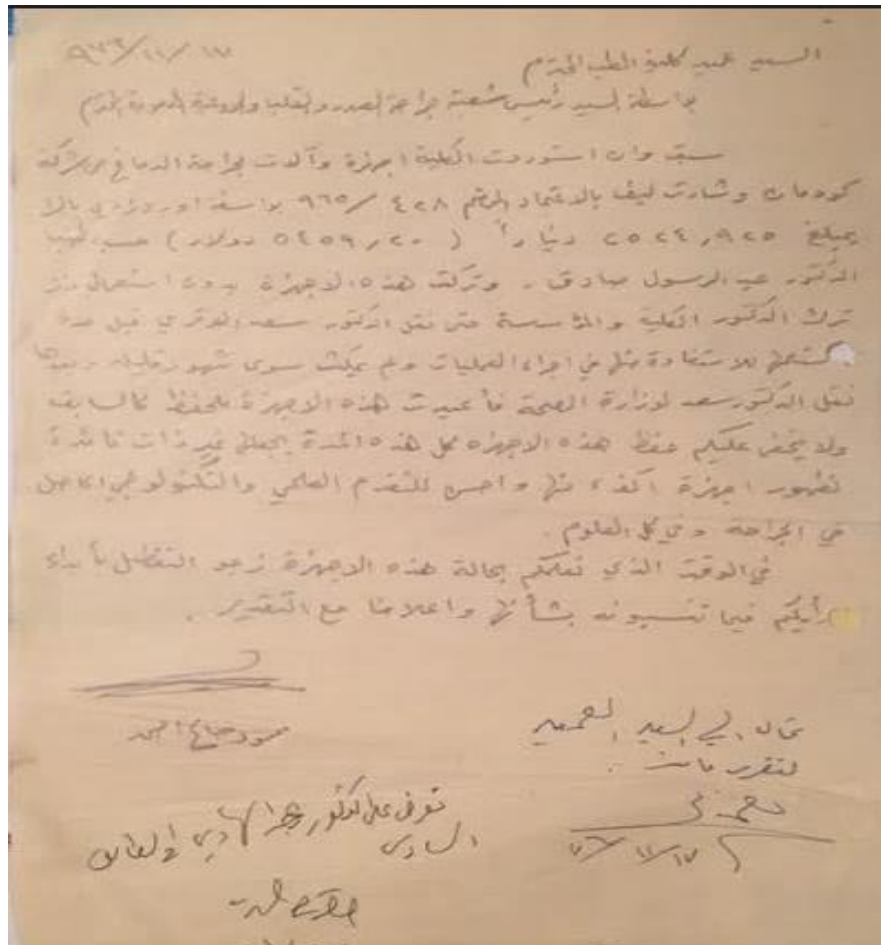 ٩٧٣/١١/١٧
السيد عميد كلية الطب المحترم
بواسطة السيد رئيس شعبة جراحة الصدر والقلب والاوعية الدموية المحترم
سبق وان استوردت الكلية اجهزة وآلات لجراحة الدماغ من شركة
كودمان وشارت ليف بالاعتماد المرقم ٤٢٨ / ٩٦٥ بواسطة اوروزدي باك
بمبلغ ٢٥٢٤,٩٢٥ ديناراً (٥٤٥٩,٢٠ دولار) حسب طلب
الدكتور عبد الرسول صادق . وتركت هذه الاجهزة بدون استعمال منذ
ترك الدكتور الكلية والمؤسسة حتى نقل الدكتور سعد الوتري قبل مدة
للاستفادة منها في اجراء العمليات ولم يمكث سوى شهور قليلة وبعدها
نقل الدكتور سعد لوزارة الصحة فأعيدت هذه الاجهزة للحفظ كالسابق
ولا يخفى عليكم حفظ هذه الاجهزه كل هذه المدة يجعلها غير ذات فائدة
لظهور اجهزة اكفأ منها واحسن للتقدم العلمي والتكنولوجي الحاصل
في الجراحة وفي كل العلوم .
في الوقت الذي نعلمكم بحالة هذه الاجهزة نرجو التفضل بأبداء
رأيكم فيما تنسبونه بشأنها واعلامنا مع التقدير .
تحال الى السيد العميد
٧٣/١١/١٧